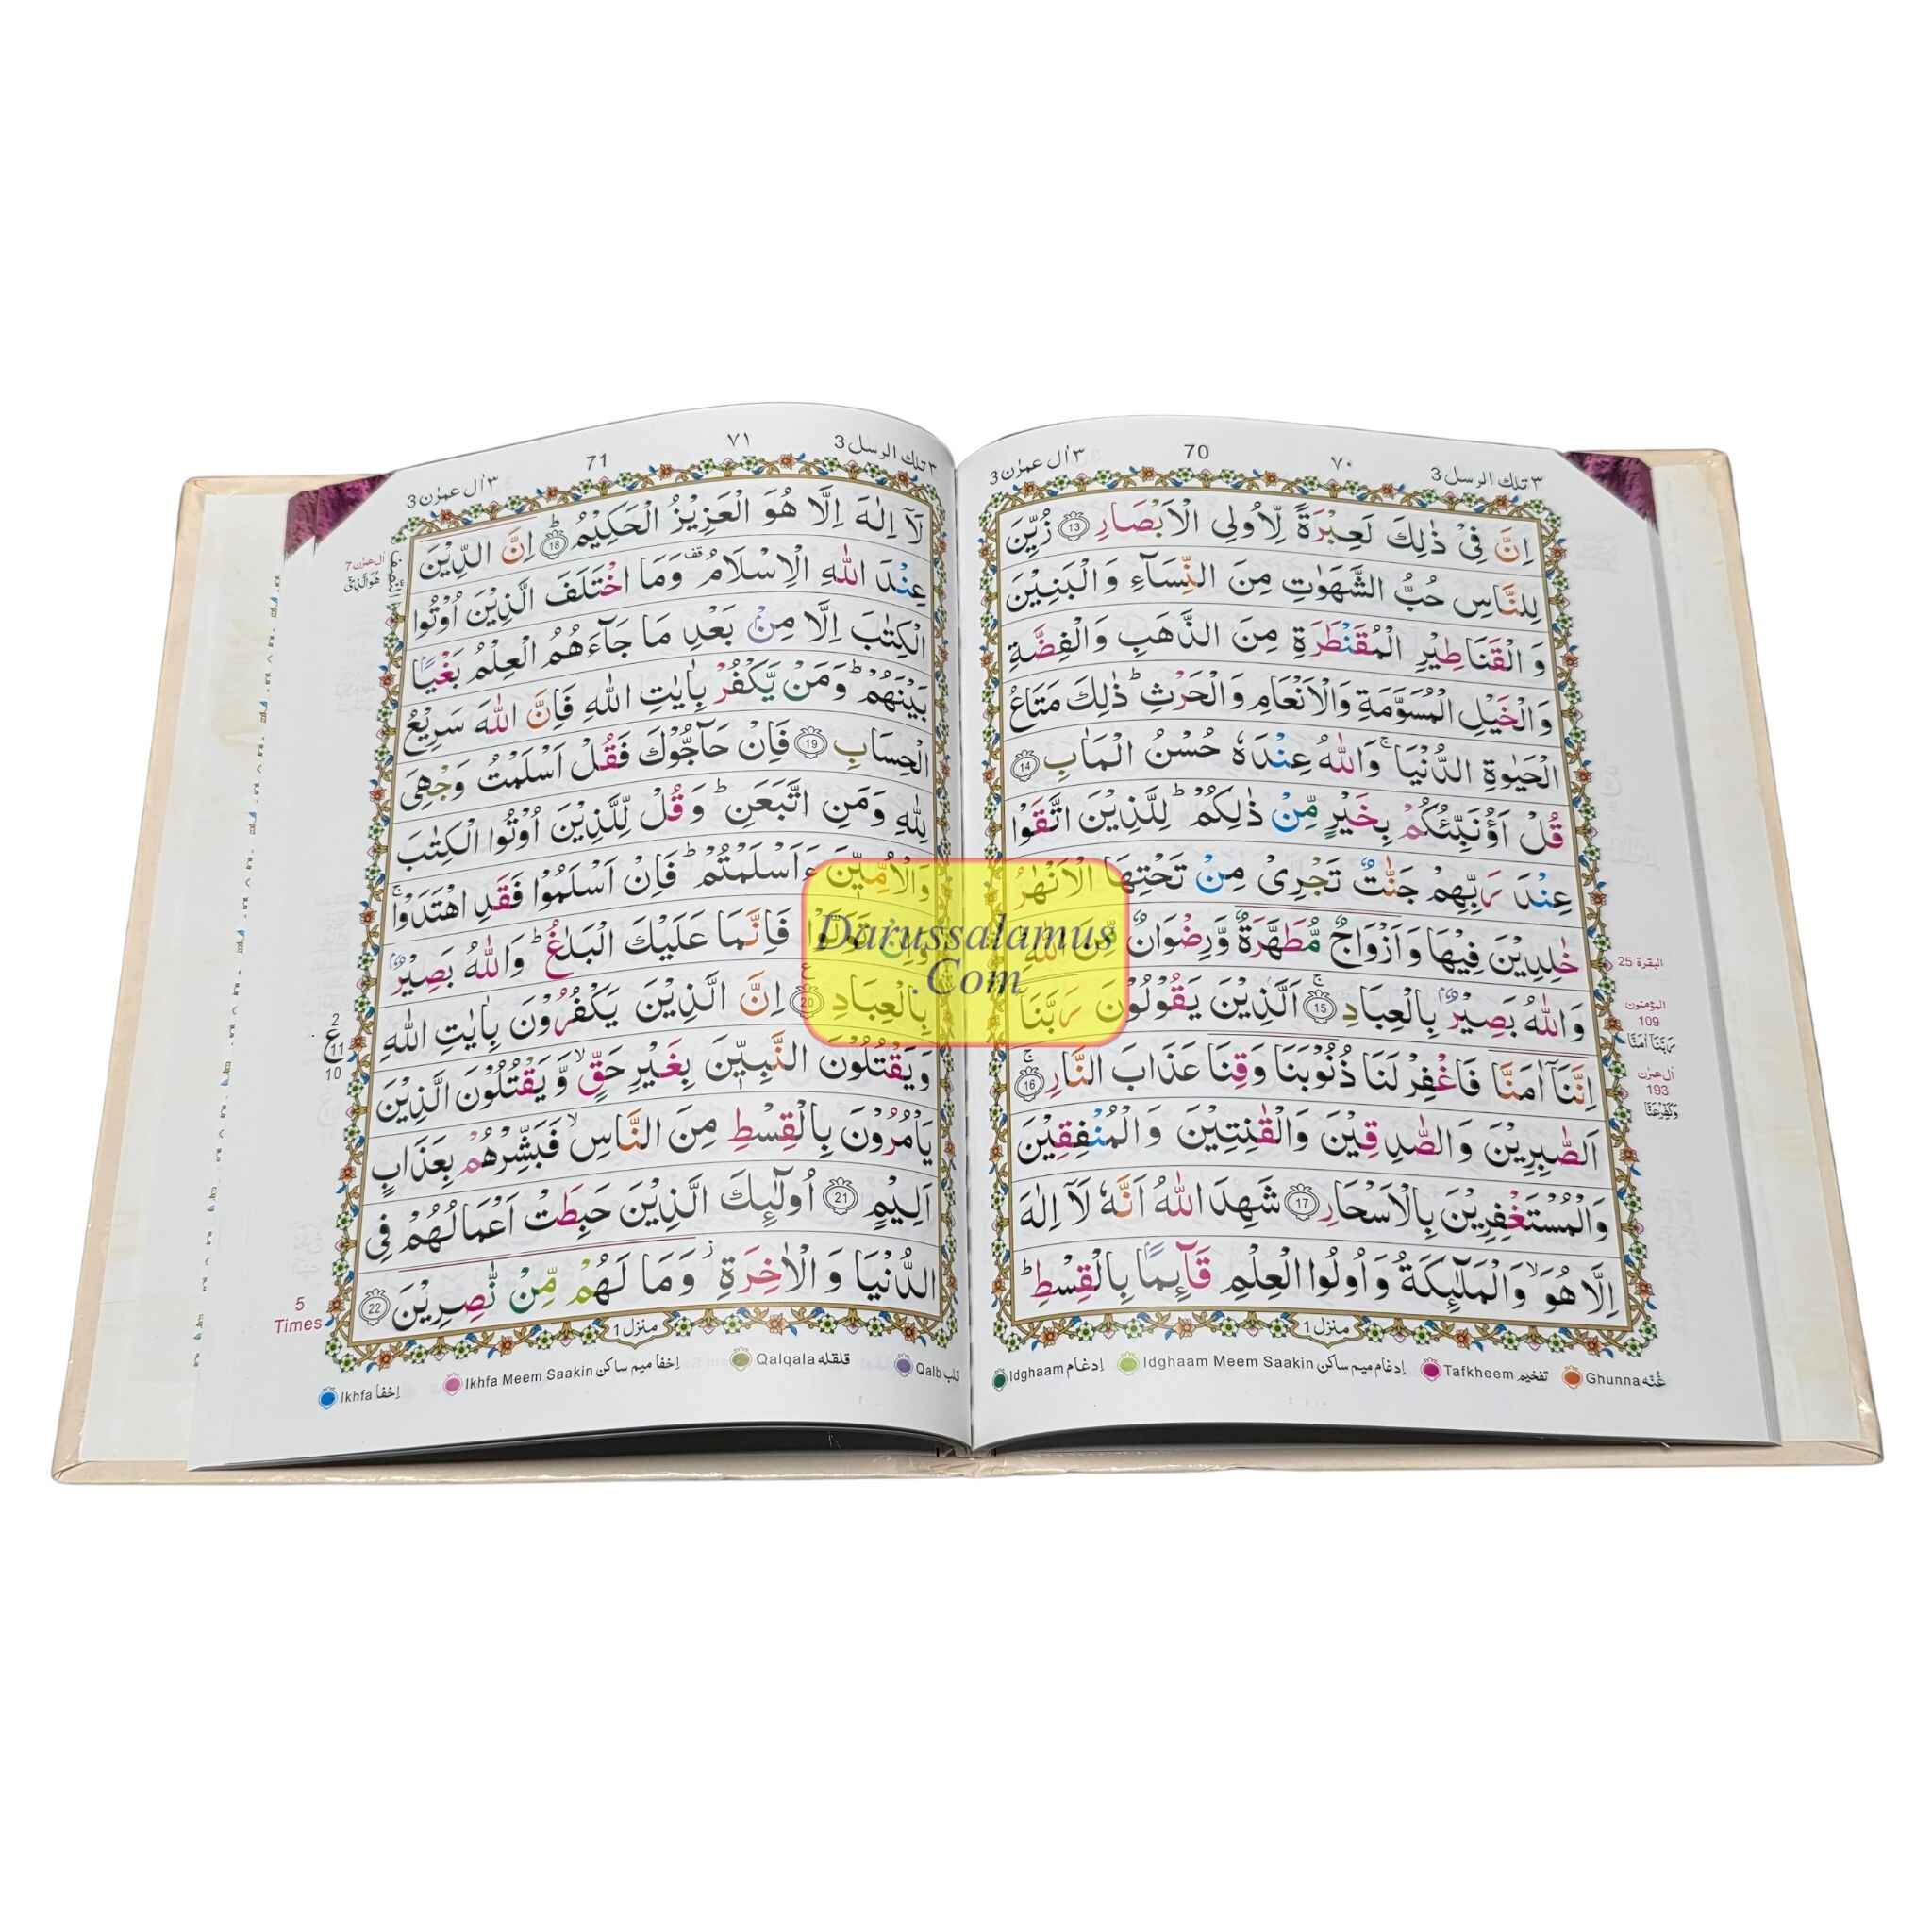 ٣ تلك الرسل 3
٧٠
70
٣ اٰل عمرٰن 3
اِنَّ فِیْ ذٰلِكَ لَعِبْرَةً لِّاُولِی الْاَبْصَارِ 13 زُیِّنَ
لِلنَّاسِ حُبُّ الشَّهَوٰتِ مِنَ النِّسَآءِ وَالْبَنِیْنَ
وَالْقَنَاطِیْرِ الْمُقَنْطَرَةِ مِنَ الذَّهَبِ وَالْفِضَّةِ
وَالْخَیْلِ الْمُسَوَّمَةِ وَالْاَنْعَامِ وَالْحَرْثِ ؕ ذٰلِكَ مَتَاعُ
الْحَیٰوةِ الدُّنْیَا ۚ وَاللّٰهُ عِنْدَهٗ حُسْنُ الْمَاٰبِ 14
قُلْ اَؤُنَبِّئُكُمْ بِخَیْرٍ مِّنْ ذٰلِكُمْ ؕ لِلَّذِیْنَ اتَّقَوْا
عِنْدَ رَبِّهِمْ جَنّٰتٌ تَجْرِیْ مِنْ تَحْتِهَا الْاَنْهٰرُ
خٰلِدِیْنَ فِیْهَا وَاَزْوَاجٌ مُّطَهَّرَةٌ وَّرِضْوَانٌ مِّنَ اللّٰهِ
وَاللّٰهُ بَصِیْرٌۢ بِالْعِبَادِ 15 ۚ اَلَّذِیْنَ یَقُوْلُوْنَ رَبَّنَا
اِنَّنَاۤ اٰمَنَّا فَاغْفِرْ لَنَا ذُنُوْبَنَا وَقِنَا عَذَابَ النَّارِ 16 ۚ
اَلصّٰبِرِیْنَ وَالصّٰدِقِیْنَ وَالْقٰنِتِیْنَ وَالْمُنْفِقِیْنَ
وَالْمُسْتَغْفِرِیْنَ بِالْاَسْحَارِ 17 شَهِدَ اللّٰهُ اَنَّهٗ لَاۤ اِلٰهَ
اِلَّا هُوَ ۙ وَالْمَلٰٓئِكَةُ وَاُولُوا الْعِلْمِ قَآئِمًۢا بِالْقِسْطِ ؕ
منزل 1
البقرة 25
المؤمنون
109
رَبَّنَا اٰمَنَّا
اٰل عمرٰن
193
وَكَفِّرْعَنَّا
Idghaam اِدغام
Idghaam Meem Saakin اِدغام میم ساكن
Tafkheem تفخیم
Ghunna غُنّه
٣ تلك الرسل 3
٧١
71
٣ اٰل عمرٰن 3
لَاۤ اِلٰهَ اِلَّا هُوَ الْعَزِیْزُ الْحَكِیْمُ 18 ؕ اِنَّ الدِّیْنَ
عِنْدَ اللّٰهِ الْاِسْلَامُ قف وَمَا اخْتَلَفَ الَّذِیْنَ اُوْتُوا
الْكِتٰبَ اِلَّا مِنْۢ بَعْدِ مَا جَآءَهُمُ الْعِلْمُ بَغْیًۢا
بَیْنَهُمْ ؕ وَمَنْ یَّكْفُرْ بِاٰیٰتِ اللّٰهِ فَاِنَّ اللّٰهَ سَرِیْعُ
الْحِسَابِ 19 فَاِنْ حَآجُّوْكَ فَقُلْ اَسْلَمْتُ وَجْهِیَ
لِلّٰهِ وَمَنِ اتَّبَعَنِ ؕ وَقُلْ لِّلَّذِیْنَ اُوْتُوا الْكِتٰبَ
وَالْاُمِّیّٖنَ ءَاَسْلَمْتُمْ ؕ فَاِنْ اَسْلَمُوْا فَقَدِ اهْتَدَوْا ۚ
وَاِنْ تَوَلَّوْا فَاِنَّمَا عَلَیْكَ الْبَلٰغُ ؕ وَاللّٰهُ بَصِیْرٌۢ
بِالْعِبَادِ 20 اِنَّ الَّذِیْنَ یَكْفُرُوْنَ بِاٰیٰتِ اللّٰهِ
وَیَقْتُلُوْنَ النَّبِیّٖنَ بِغَیْرِ حَقٍّ ۙ وَّیَقْتُلُوْنَ الَّذِیْنَ
یَاْمُرُوْنَ بِالْقِسْطِ مِنَ النَّاسِ ۙ فَبَشِّرْهُمْ بِعَذَابٍ
اَلِیْمٍ 21 اُولٰٓئِكَ الَّذِیْنَ حَبِطَتْ اَعْمَالُهُمْ فِی
الدُّنْیَا وَالْاٰخِرَةِ ؗ وَمَا لَهُمْ مِّنْ نّٰصِرِیْنَ 22
منزل 1
اٰل عمرٰن 7
2
ع
11
10
5
Times
Ikhfa اِخفا
Ikhfa Meem Saakin اِخفا میم ساكن
Qalqala قلقله
Qalb قلب
Darussalamus
.Com